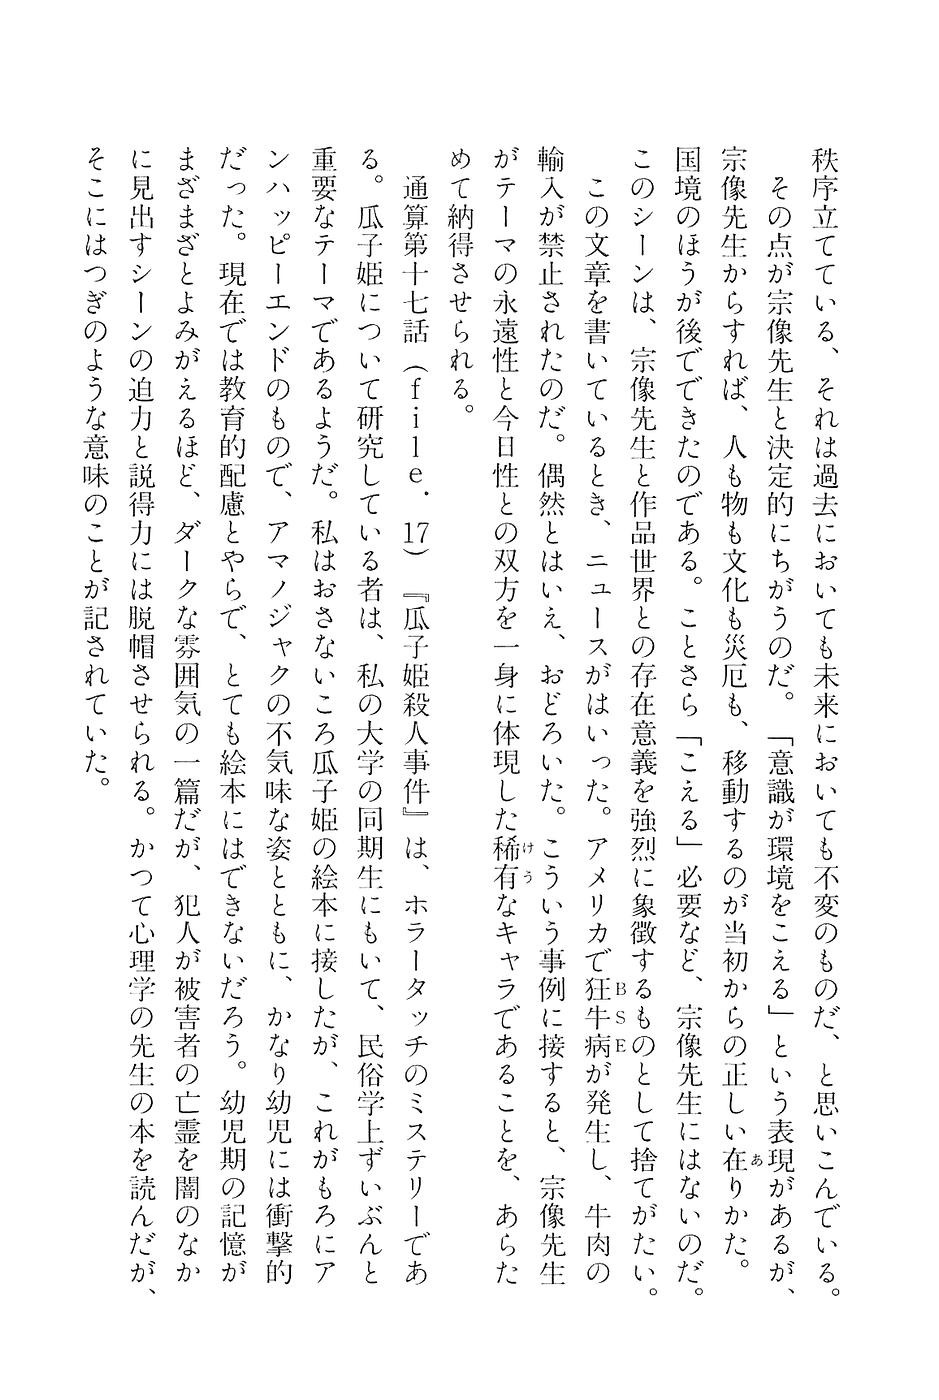 秩序立てている、それは過去においても未来においても不変のものだ、と思いこんでいる。
その点が宗像先生と決定的にちがうのだ。「意識が環境をこえる」という表現があるが、
宗像先生からすれば、人も物も文化も災厄も、移動するのが当初からの正しい在りかた。
国境のほうが後でできたのである。ことさら「こえる」必要など、宗像先生にはないのだ。
このシーンは、宗像先生と作品世界との存在意義を強烈に象徴するものとして捨てがたい。
この文章を書いているとき、ニュースがはいった。アメリカで狂牛病が発生し、牛肉の
輸入が禁止されたのだ。偶然とはいえ、おどろいた。こういう事例に接すると、宗像先生
がテーマの永遠性と今日性との双方を一身に体現した稀有なキャラであることを、あらた
めて納得させられる。
通算第十七話（file.17）『瓜子姫殺人事件』は、ホラータッチのミステリーであ
る。瓜子姫について研究している者は、私の大学の同期生にもいて、民俗学上ずいぶんと
重要なテーマであるようだ。私はおさないころ瓜子姫の絵本に接したが、これがもろにア
ンハッピーエンドのもので、アマノジャクの不気味な姿とともに、かなり幼児には衝撃的
だった。現在では教育的配慮とやらで、とても絵本にはできないだろう。幼児期の記憶が
まざまざとよみがえるほど、ダークな雰囲気の一篇だが、犯人が被害者の亡霊を闇のなか
に見出すシーンの迫力と説得力には脱帽させられる。かつて心理学の先生の本を読んだが、
そこにはつぎのような意味のことが記されていた。